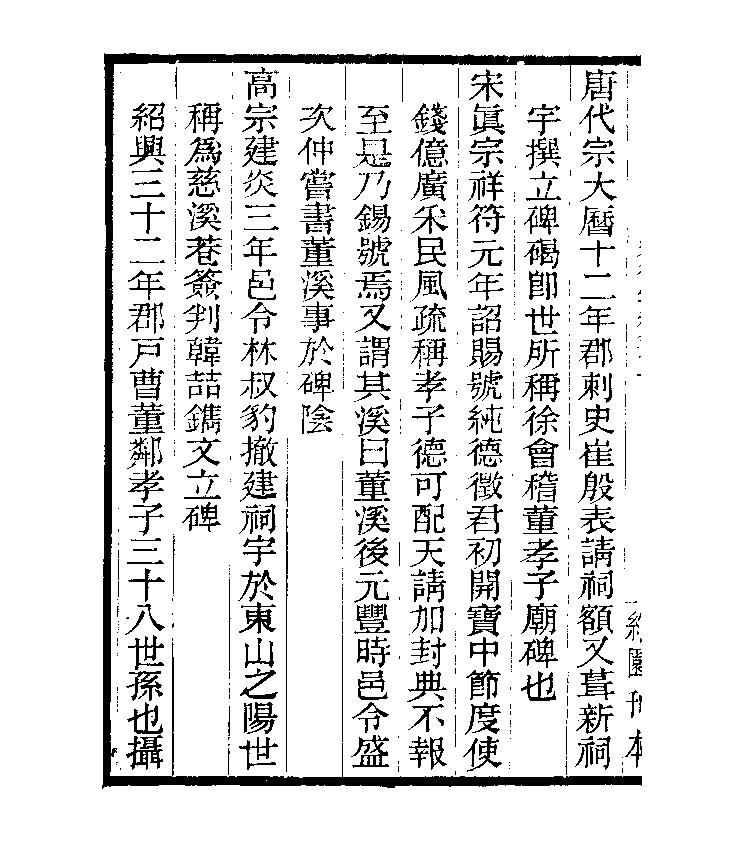 唐代宗大曆十二年郡刺史崔殷表請祠額又葺新祠
宇撰立碑碣卽世所稱徐會稽董孝子廟碑也
宋眞宗祥符元年詔賜號純德徵君初開寶中節度使
錢億廣釆民風疏稱孝子德可配天請加封典不報
至是乃錫號焉又謂其溪曰董溪後元豐時邑令盛
次仲嘗書董溪事於碑陰
高宗建炎三年邑令林叔豹撤建祠宇於東山之陽世
稱爲慈溪巷簽判韓喆鐫文立碑
紹興三十二年郡戸曹董鄰孝子三十八世孫也攝